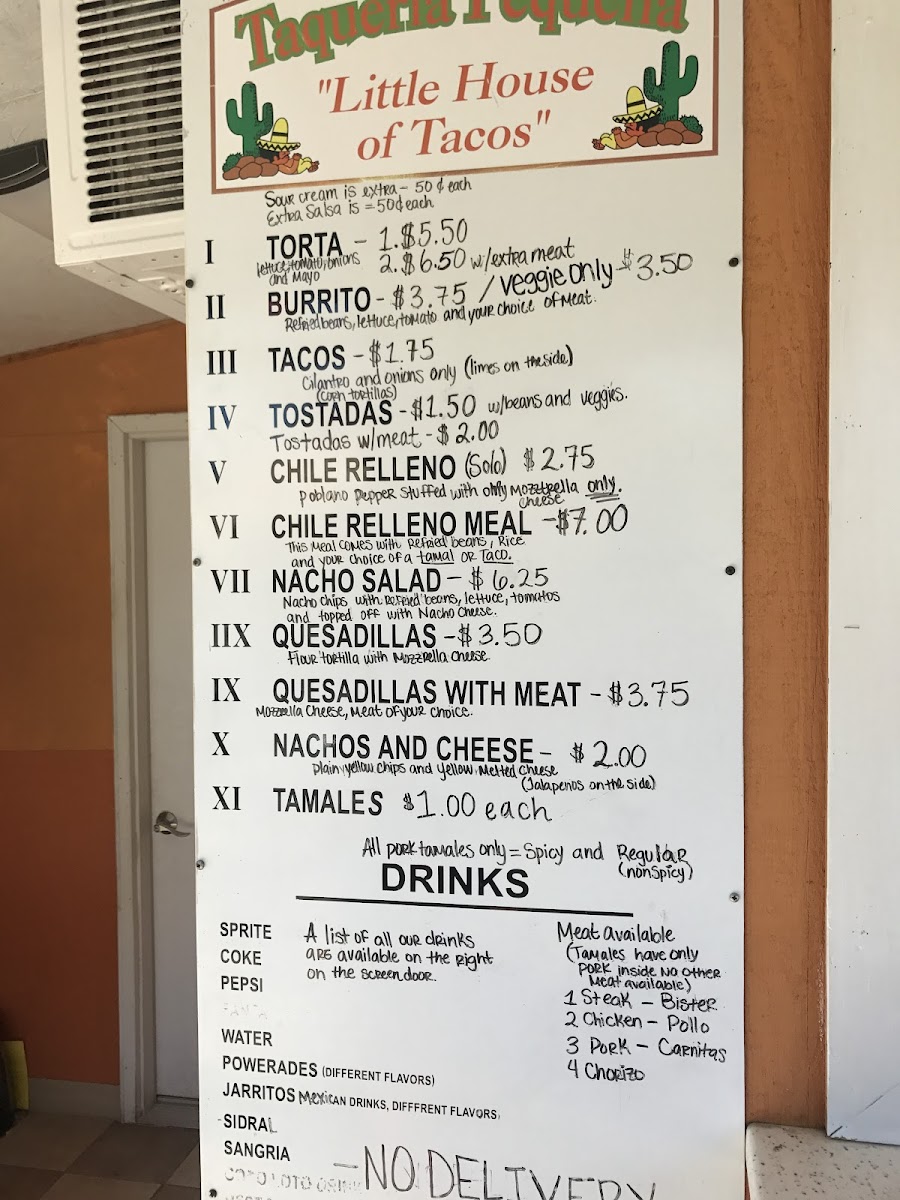 Taqueria Pequeña
"Little House
of Tacos"
Sour cream is extra - 50 ¢ each
Extra Salsa is = 50¢ each
I TORTA - 1. $5.50
lettuce, tomato, onions and Mayo
2. $6.50 w/extra meat
II BURRITO - $3.75 / Veggie Only - $3.50
Refried beans, lettuce, tomato and your choice of Meat.
III TACOS - $1.75
Cilantro and onions only (limes on the side)
(corn tortillas)
IV TOSTADAS - $1.50 w/beans and veggies.
Tostadas w/meat - $2.00
V CHILE RELLENO (Solo) $2.75
Poblano Pepper Stuffed with only Mozzrella cheese only.
VI CHILE RELLENO MEAL - $7.00
This Meal comes with Refried beans, Rice
and your choice of a tamal or Taco.
VII NACHO SALAD - $6.25
Nacho chips with Refried beans, lettuce, tomatos
and topped off with Nacho Cheese.
IIX QUESADILLAS - $3.50
Flour tortilla with Mozzrella cheese.
IX QUESADILLAS WITH MEAT - $3.75
Mozzrella Cheese, Meat of your choice.
X NACHOS AND CHEESE - $2.00
plain yellow chips and yellow Melted Cheese
(Jalapenos on the side)
XI TAMALES $1.00 each
All pork tamales only = Spicy and Regular
(nonspicy)
DRINKS
SPRITE
COKE
PEPSI
FANTA
WATER
POWERADES (DIFFERENT FLAVORS)
JARRITOS Mexican DRINKS, DIFFFRENT FLAVORS,
SIDRAL
SANGRIA
A list of all our drinks
are available on the right
on the screen door.
Meat available
(Tamales have only
pork inside no other
meat available)
1 Steak - Bister
2 Chicken - Pollo
3 Pork - Carnitas
4 Chorizo
- NO DELIVERY